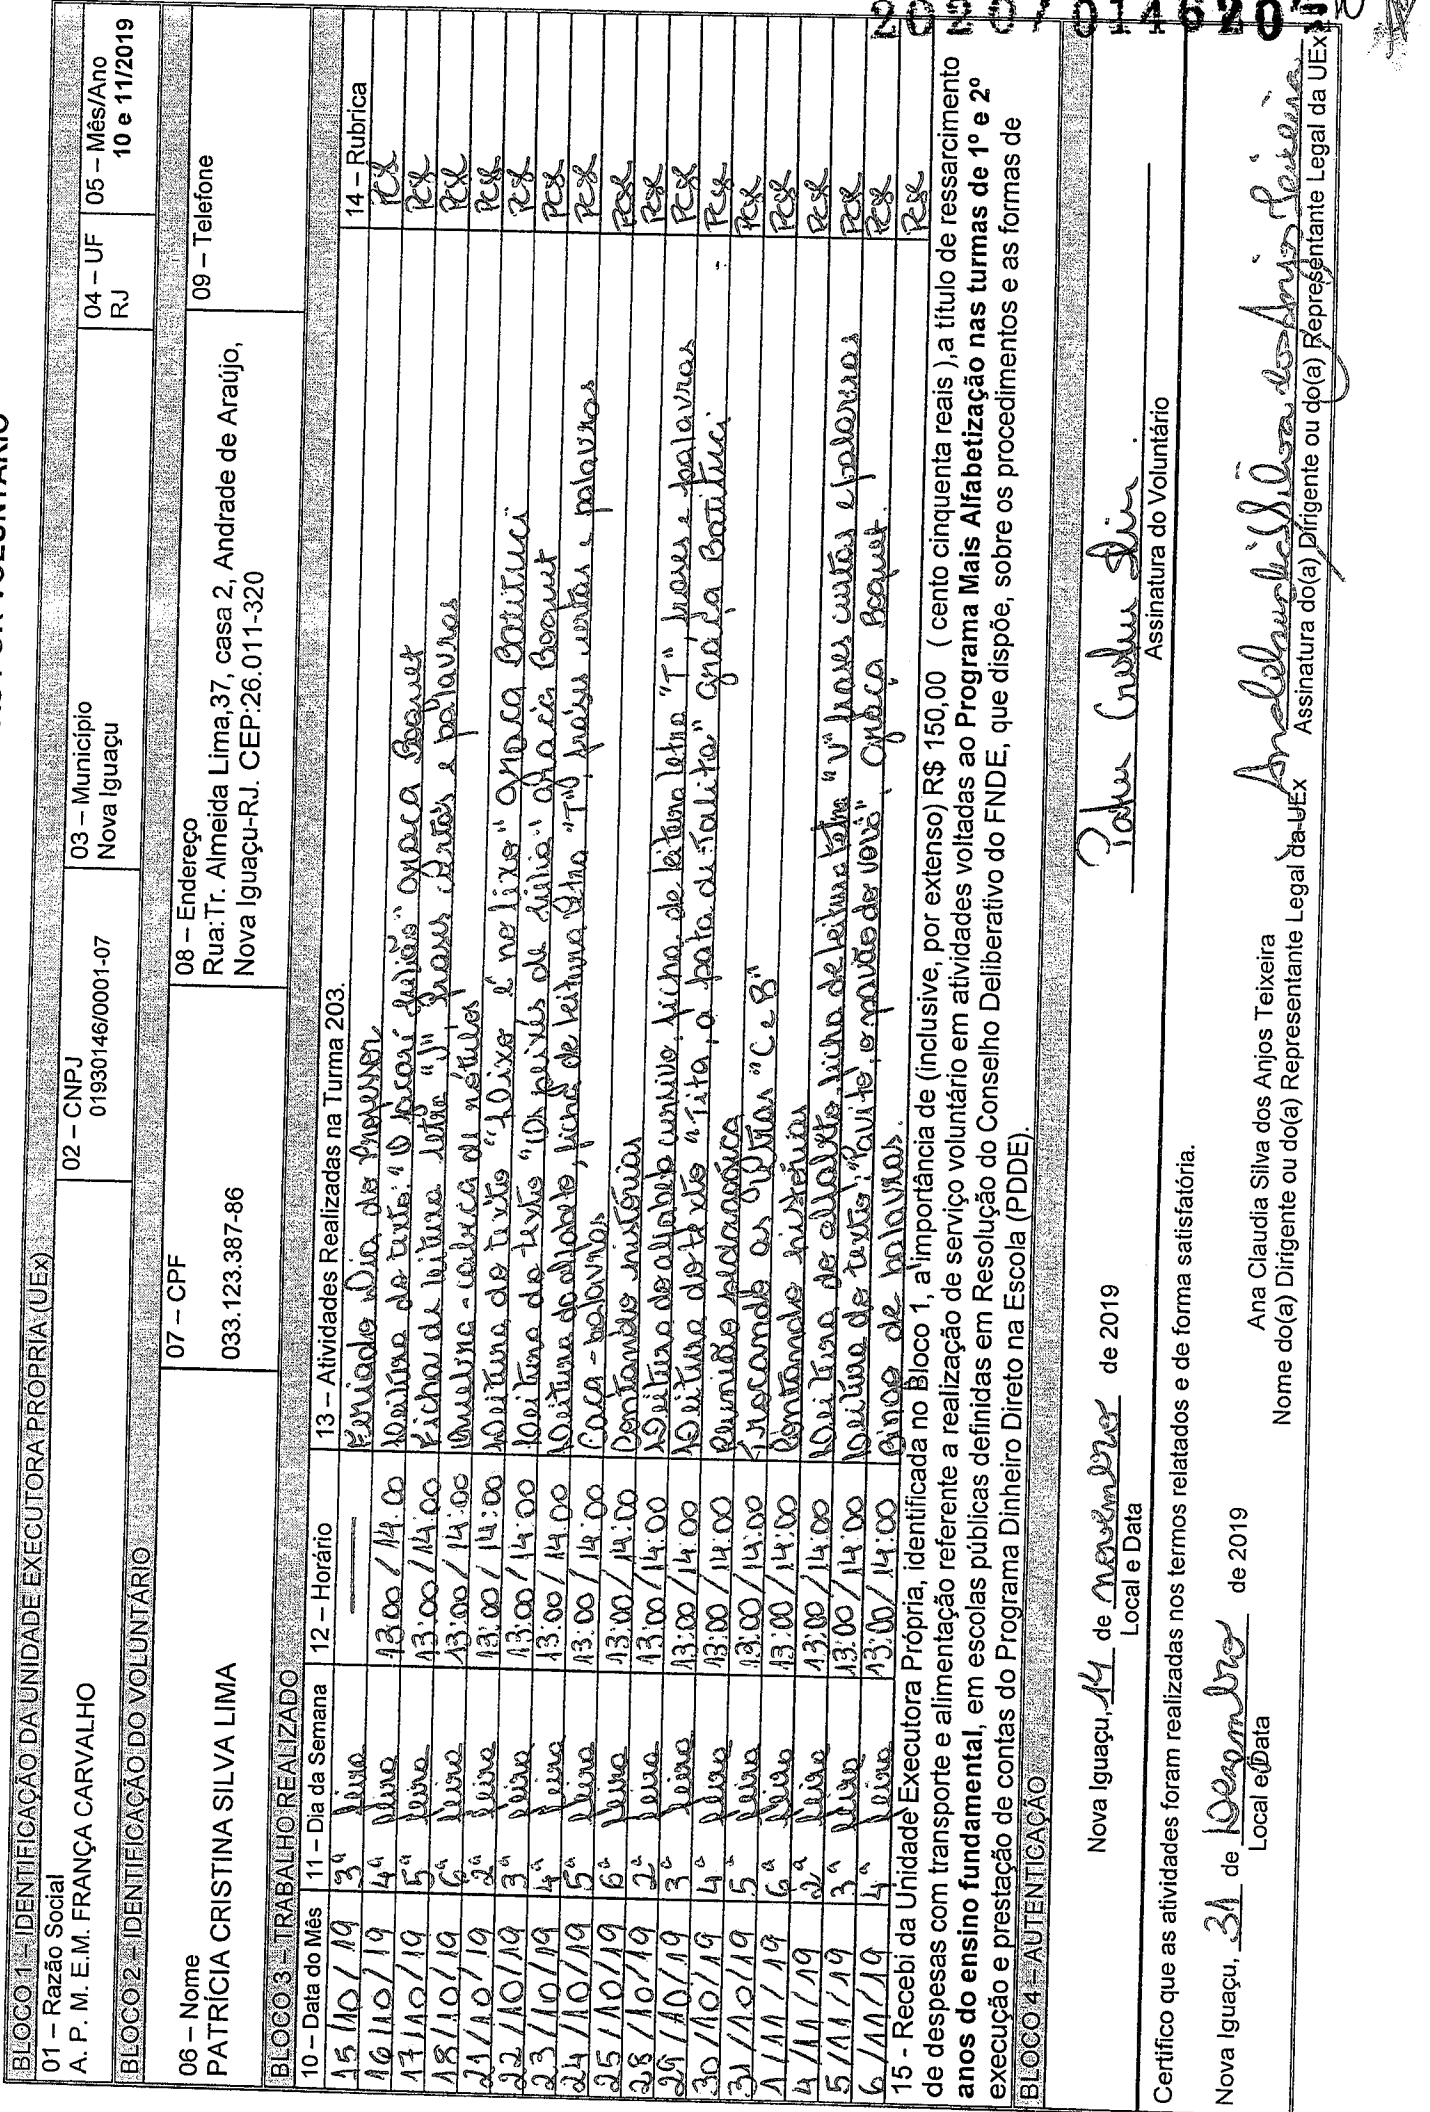 2020/014620
BLOCO 1 – IDENTIFICAÇÃO DA UNIDADE EXECUTORA PRÓPRIA (UEx)
01 – Razão Social
A. P. M. E.M. FRANÇA CARVALHO
02 – CNPJ
01930146/0001-07
03 – Município
Nova Iguaçu
04 – UF
RJ
05 – Mês/Ano
10 e 11/2019
BLOCO 2 – IDENTIFICAÇÃO DO VOLUNTÁRIO
06 – Nome
PATRÍCIA CRISTINA SILVA LIMA
07 – CPF
033.123.387-86
08 – Endereço
Rua:Tr. Almeida Lima,37, casa 2, Andrade de Araújo,
Nova Iguaçu-RJ. CEP:26.011-320
09 – Telefone
BLOCO 3 – TRABALHO REALIZADO
10 – Data do Mês 11 – Dia da Semana 12 – Horário 13 – Atividades Realizadas na Turma 203. 14 – Rubrica
15/10/19 3ª feira — Feriado Dia do Professor
16/10/19 4ª feira 13:00/14:00 Leitura do texto: "O jacaré Julião" graça Boquet
17/10/19 5ª feira 13:00/14:00 Ficha de leitura letra "J", frases curtas e palavras
18/10/19 6ª feira 13:00/14:00 de rótulos
21/10/19 2ª feira 13:00/14:00 Leitura do texto "Lixo é no lixo" graça Batituci
22/10/19 3ª feira 13:00/14:00 Leitura do texto "Os peixes de" graça Boquet
23/10/19 4ª feira 13:00/14:00 Leitura do alfabeto, ficha de leitura letra "T", frases curtas e palavras
24/10/19 5ª feira 13:00/14:00 Caça-palavras
25/10/19 6ª feira 13:00/14:00 Contando histórias
28/10/19 2ª feira 13:00/14:00 Leitura do alfabeto cursivo, ficha de leitura letra "T", frases e palavras
29/10/19 3ª feira 13:00/14:00 Leitura do texto "Tita, a pata de Talita" graça Batituci
30/10/19 4ª feira 13:00/14:00 Reunião pedagógica
31/10/19 5ª feira 13:00/14:00 Trocando as letras "C e B"
1/11/19 6ª feira 13:00/14:00 Contando histórias
4/11/19 2ª feira 13:00/14:00 Leitura do alfabeto, ficha de leitura letra "V" frases curtas e palavras
5/11/19 3ª feira 13:00/14:00 Leitura do texto: "Pavito, o pavão do vovô", graça Boquet.
6/11/19 4ª feira 13:00/14:00 Bingo de palavras.
15 - Recebi da Unidade Executora Própria, identificada no Bloco 1, a importância de (inclusive, por extenso) R$ 150,00 ( cento cinquenta reais ),a título de ressarcimento
de despesas com transporte e alimentação referente a realização de serviço voluntário em atividades voltadas ao Programa Mais Alfabetização nas turmas de 1º e 2º
anos do ensino fundamental, em escolas públicas definidas em Resolução do Conselho Deliberativo do FNDE, que dispõe, sobre os procedimentos e as formas de
execução e prestação de contas do Programa Dinheiro Direto na Escola (PDDE).
BLOCO 4 – AUTENTICAÇÃO
Nova Iguaçu, 14 de novembro de 2019
Local e Data
Assinatura do Voluntário
Certifico que as atividades foram realizadas nos termos relatados e de forma satisfatória.
Nova Iguaçu, 31 de Dezembro de 2019
Local e Data
Ana Claudia Silva dos Anjos Teixeira
Nome do(a) Dirigente ou do(a) Representante Legal da UEx
Ana Claudia Silva dos Anjos Teixeira
Assinatura do(a) Dirigente ou do(a) Representante Legal da UEx